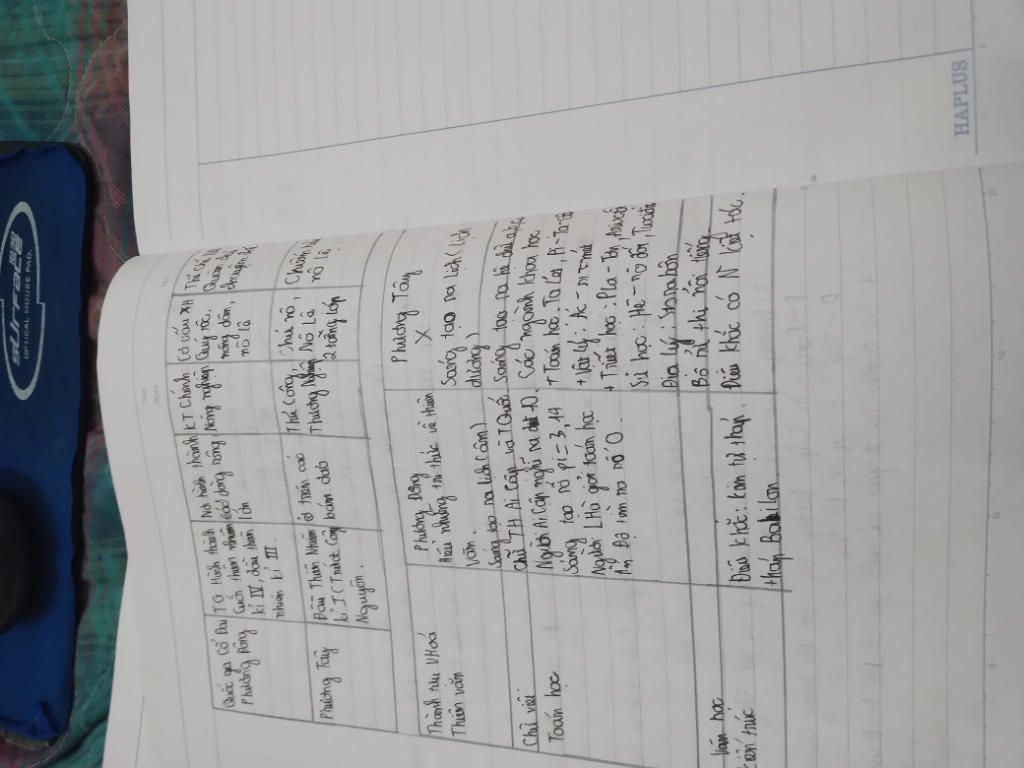 Quốc gia Cổ Đại
Phương Đông
TG Hình thành
Cuối thiên niên
kỉ IV, đầu thiên
niên kỉ III.
Nơi hình thành
các dòng sông
lớn
KT Chính
Nông nghiệp
Cơ cấu XH
Quý tộc,
nông dân,
nô lệ
Thể chế
Quân chủ
chuyên
Phương Tây
Đầu Thiên Niên
kỉ I (Trước Công
Nguyên.
ở trên các
bán đảo
Thủ Công,
Thương Nghiệp
Chủ nô,
Nô Lệ.
2 tầng lớp
Chiếm
nô lệ
Thành tựu VHoá
Phương Đông
Phương Tây
Thiên văn
Hiểu những tri thức về thiên
văn.
Sáng tạo ra lịch (âm)
X
Sáng tạo ra lịch (lịch
dương)
Chữ viết
Chữ TH Ai Cập và TQuốc
Sáng tạo ra hệ chữ a,b,c
Toán học
Người Ai Cập nghĩ ra 10.
Sáng tạo số pi = 3,14
Người LHà giỏi toán học
Ấn Độ tìm ra số 0.
Các ngành khoa học
+ Toán học: Ta Lét, Pi-Ta-Go
+ Vật lý: Ác-si-mét
+ Triết học: Pla-tôn,
Sử học: Hê-rô-đốt,
Địa lý: Stơ-ra-bôn
Văn học
Bộ sử thi nổi tiếng
Kiến trúc
Điêu khắc: kim tự tháp,
tháp Babilon.
Điêu khắc có N kiệt tác.
SURFACE
OPTICAL MOUSE PAD.
HAPLUS